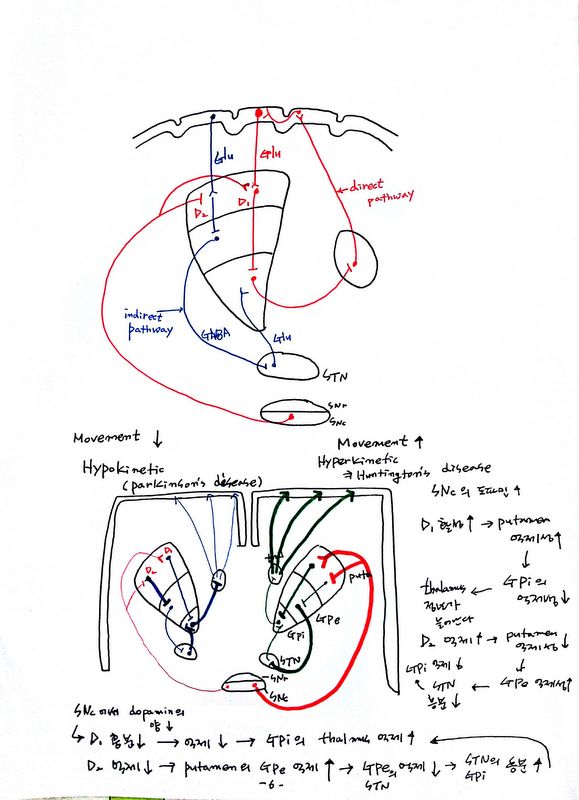 Glu
Glu
direct
pathway
D2
D1
indirect
pathway
GABA
Glu
STN
SNr
SNc
Movement ↓
Hypokinetic
(parkinson's disease)
Movement ↑
Hyperkinetic
⇒ Huntington's disease
SNc의 도파민 ↑
D1 흥분↑ → putamen
억제성↑
↓
thalamus ← GPi의
억제성↓
D2 억제↑ → putamen
억제성↓
↓
GPi 억제↓
↑ STN ← GPe 억제성↑
흥분↓
D2
D1
puta
GPe
GPi
STN
SNr
SNc
SNc에서 dopamine의
양↓
↳ D1 흥분↓ → 억제↓ → GPi의 thalamus 억제↑
D2 억제↓ → putamen의 GPe 억제↑ → GPe의 억제↓ → STN의 흥분↑
STN
GPi
-6-